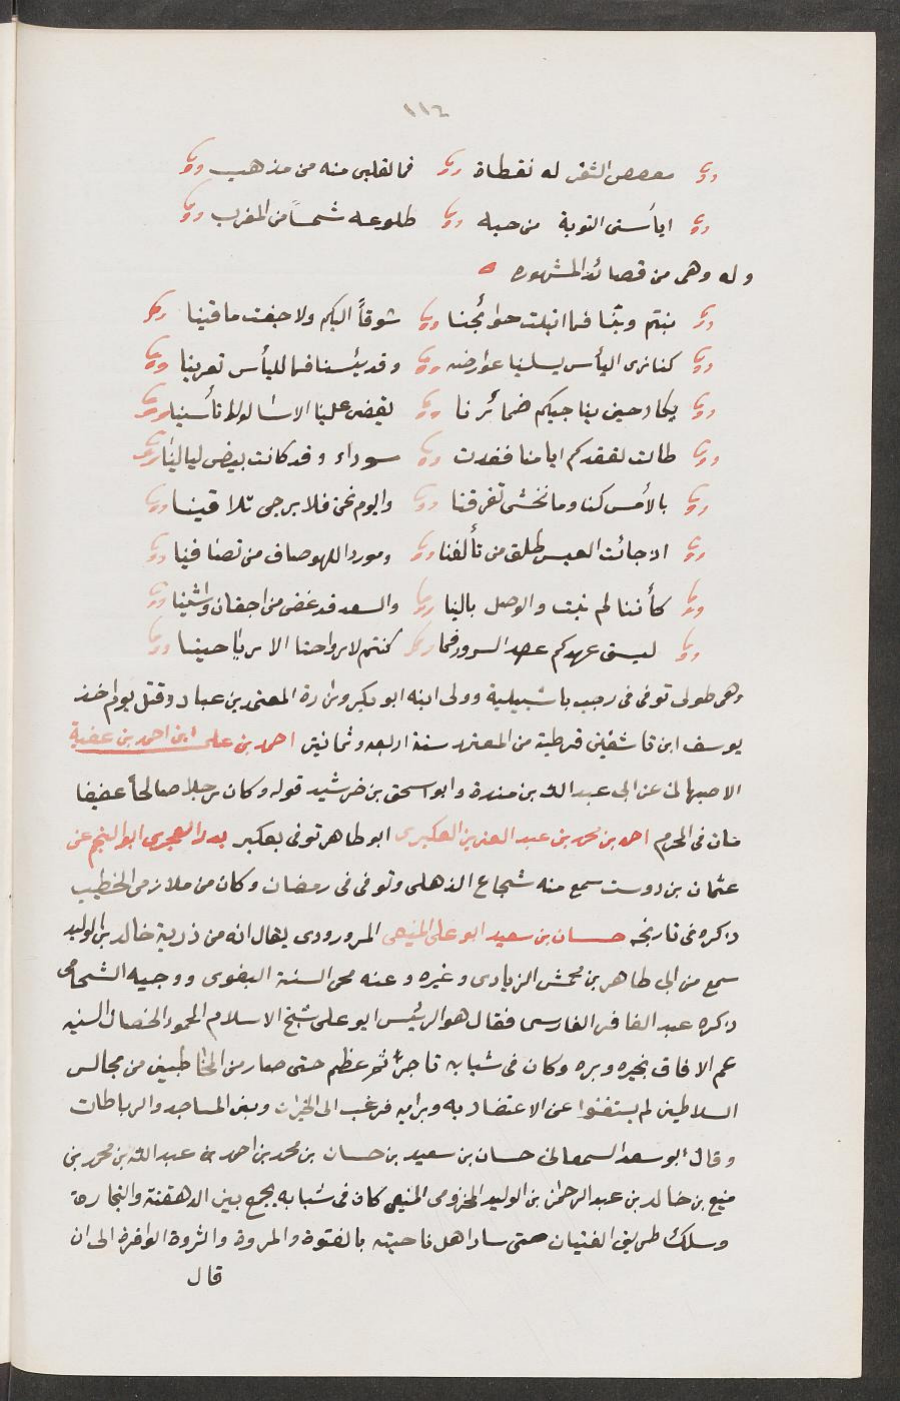 ١١٤
مفصص الثغر له نقطة فما لقلبى منه من مذهب
ايأسنى التوبة من حبه طلوعه شمساً من المغرب
وله وهى من قصائد المشهوره
بنتم وبنا فما ابتلت حوائجنا شوقاً اليكم ولا جفت ماقينا
كنا نرى اليأس يسلينا عوارضه وقد يئسنا فما لليأس تعرينا
يكاد حين يناجيكم ضمائرنا يقضى علينا الاسا لولا تأسينا
طالت لفقدكم ايامنا فغدت سوداء وقد كانت بيض ليالينا
بالأمس كنا وما نخشى تفرقنا واليوم نحن فلا يرجى تلاقينا
اذ جانب العيس طلق من تألفنا ومورد اللهو صاف من تصافينا
كأننا لم نبت والوصل بالينا والسعد قد غض من اجفان واشينا
ليسق عهدكم عهد السرور فما كنتم لارواحنا الا رياحينا
وهى طولى توفى فى رجب باشبيلية وولى ابنه ابو بكر وزارة المعتمد بن عباد وقتل يوم اخذ
يوسف ابن تاشفين قرطبة من المعتمد سنة اربعه وثمانين احمد بن على ابن احمد بن عقبة
الاصبهانى عن ابى عبد الله بن مندة وابو اسحق بن خرشيد قوله وكان رجلا صالحاً عفيفا
مات فى المحرم احمد بن محمد بن عبد العزيز العكبرى ابو طاهر توفى بعكبر بدر العجرى ابو النجم عن
عثمان بن دوست سمع منه شجاع الذهلى وتوفى فى رمضان وكان من ملازمى الخطيب
ذكره فى تاريخه حسان بن سعيد ابو على المنيعى المرورودى يقال انه من ذرية خالد بن الوليد
سمع من ابى طاهر بن محمش الزيادى وغيره وعنه محى السنة البغوى ووجيه الشحامى
ذكره عبد الغافر الفارسى فقال هو الرئيس ابو على شيخ الاسلام المحمود الخصال السنيه
عم الافاق بخيره وبره وكان فى شبابه تاجراً ثم عظم حتى صار من المخاطبين من مجالس
السلاطين لم يستغنوا عن الاعتضاد به وبرايه فرغب الى الخيرات وبنى المساجد والرباطات
وقال ابو سعد السمعانى حسان بن سعيد بن حسان بن محمد بن احمد بن عبد الله بن محمد بن
منيع بن خالد بن عبد الرحمن بن الوليد المخزومى المنيعى كان فى شبابه يجمع بين الدهقنة والتجارة
وسلك طريق الفتيان حتى ساد اهل ناحيته بالفتوة والمروة والثروة الوافرة الى ان
قال